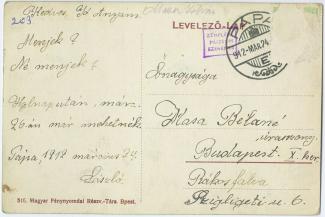 Kedves, Jó Anyám
263
Menjek?
Ne menjek?
Holnapután, márz.
26-án már mehetnék.
Pápa, 1912 március 24.
László.
LEVELEZŐ-LAP
PÁPA
912 MÁR. 24
E
Őnagysága
Kasa Béláné
úrasszony
Budapest. X. ker.
Rákosfalva
Szigligeti-u. 6
516. Magyar Fénynyomdai Részv.-Társ. Bpest.